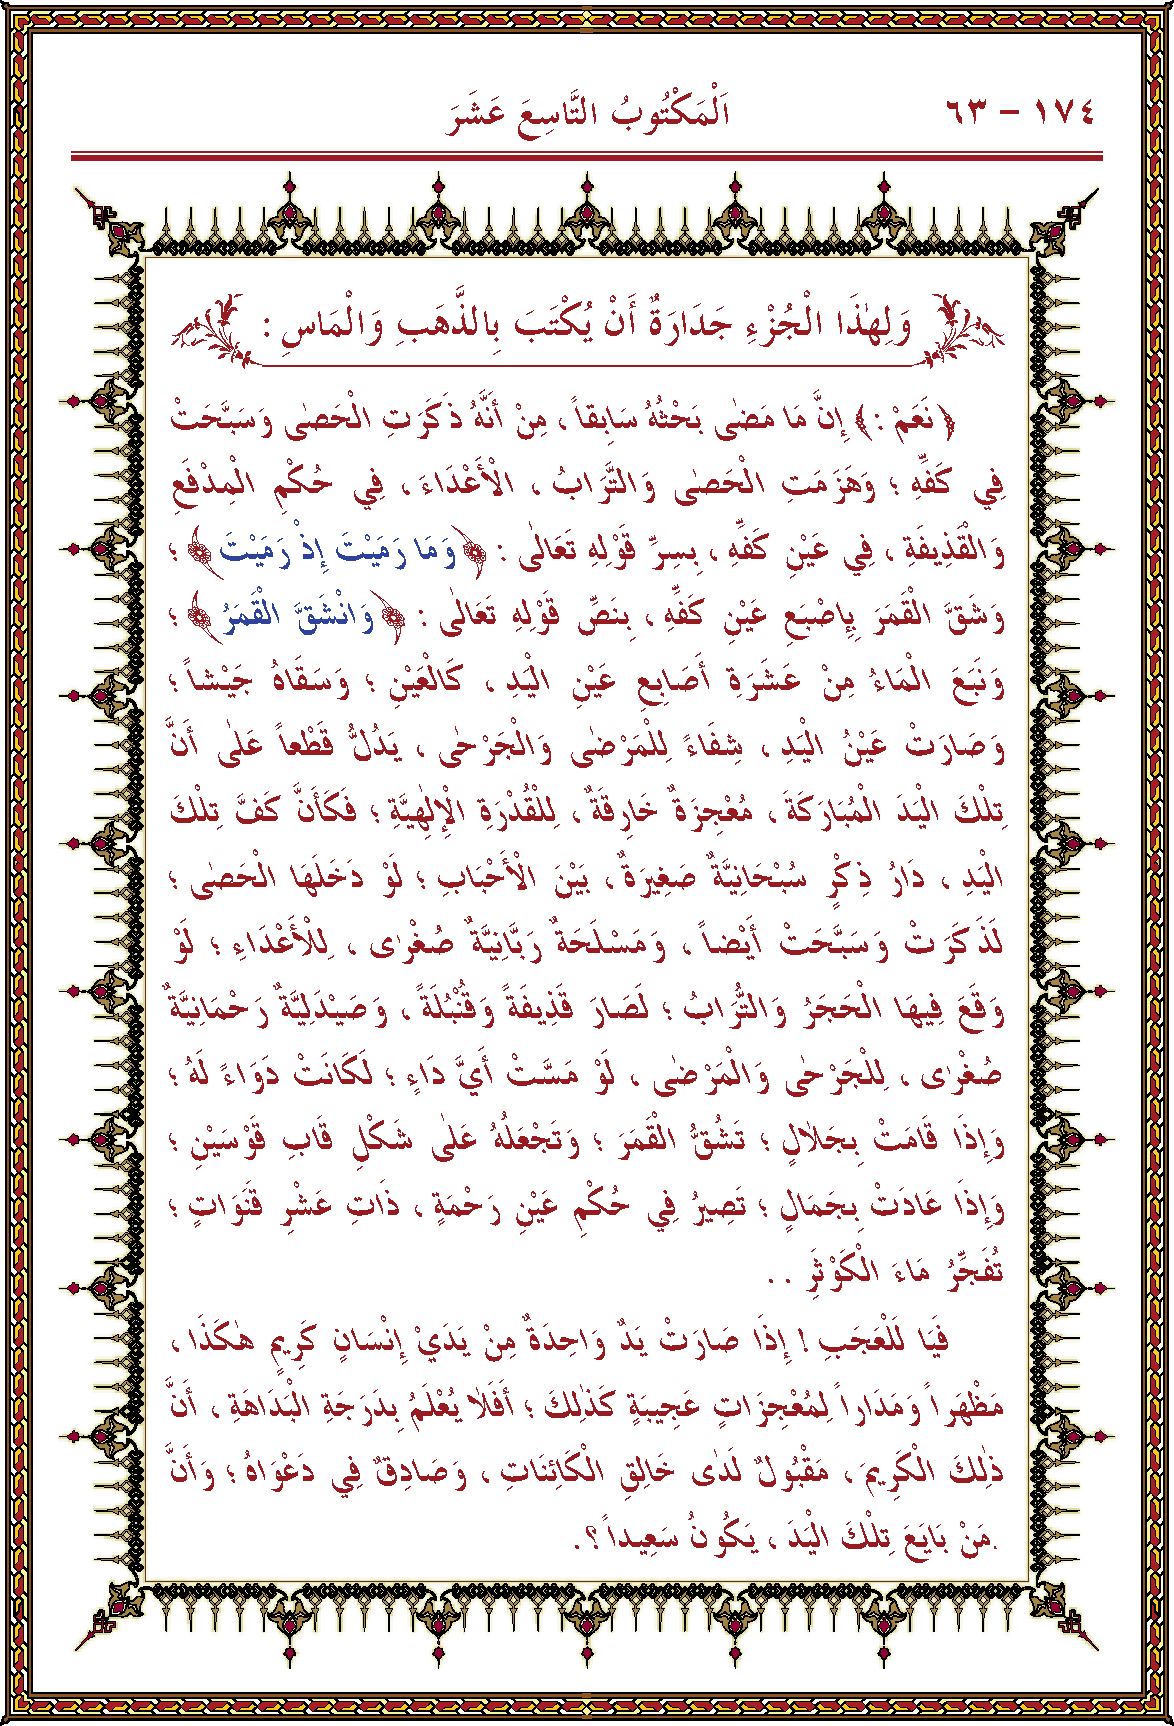 ١٧٤ – ٦٣ اَلْمَكْتُوبُ التَّاسِعَ عَشَرَ
وَلِهٰذَا الْجُزْءِ جَدَارَةٌ أَنْ يُكْتَبَ بِالذَّهَبِ وَالْمَاسِ :
﴿نَعَمْ :﴾ إِنَّ مَا مَضٰى بَحْثُهُ سَابِقاً ، مِنْ أَنَّهُ ذَكَرَتِ الْحَصٰى وَسَبَّحَتْ
فِي كَفِّهِ ؛ وَهَزَمَتِ الْحَصٰى وَالتُّرَابُ ، الْأَعْدَاءَ ، فِي حُكْمِ الْمِدْفَعِ
وَالْقَذِيفَةِ ، فِي عَيْنِ كَفِّهِ ، بِسِرِّ قَوْلِهِ تَعَالٰى : ﴿وَمَا رَمَيْتَ إِذْ رَمَيْتَ﴾ ؛
وَشَقَّ الْقَمَرَ بِإِصْبَعِ عَيْنِ كَفِّهِ ، بِنَصِّ قَوْلِهِ تَعَالٰى : ﴿وَانْشَقَّ الْقَمَرُ﴾ ؛
وَنَبَعَ الْمَاءُ مِنْ عَشَرَةِ أَصَابِعِ عَيْنِ الْيَدِ ، كَالْعَيْنِ ؛ وَسَقَاهُ جَيْشاً ؛
وَصَارَتْ عَيْنُ الْيَدِ ، شِفَاءً لِلْمَرْضٰى وَالْجَرْحٰى ، يَدُلُّ قَطْعاً عَلٰى أَنَّ
تِلْكَ الْيَدَ الْمُبَارَكَةَ ، مُعْجِزَةٌ خَارِقَةٌ ، لِلْقُدْرَةِ الْإِلٰهِيَّةِ ؛ فَكَأَنَّ كَفَّ تِلْكَ
الْيَدِ ، دَارُ ذِكْرٍ سُبْحَانِيَّةٌ صَغِيرَةٌ ، بَيْنَ الْأَحْبَابِ ؛ لَوْ دَخَلَهَا الْحَصٰى ؛
لَذَكَرَتْ وَسَبَّحَتْ أَيْضاً ، وَمَسْلَحَةٌ رَبَّانِيَّةٌ صُغْرٰى ، لِلْأَعْدَاءِ ؛ لَوْ
وَقَعَ فِيهَا الْحَجَرُ وَالتُّرَابُ ؛ لَصَارَ قَذِيفَةً وَقُنْبُلَةً ، وَصَيْدَلِيَّةٌ رَحْمَانِيَّةٌ
صُغْرٰى ، لِلْجَرْحٰى وَالْمَرْضٰى ، لَوْ مَسَّتْ أَيَّ دَاءٍ ؛ لَكَانَتْ دَوَاءً لَهُ ؛
وَإِذَا قَامَتْ بِجَلَالٍ ؛ تَشُقُّ الْقَمَرَ ؛ وَتَجْعَلُهُ عَلٰى شَكْلِ قَابِ قَوْسَيْنِ ؛
وَإِذَا عَادَتْ بِجَمَالٍ ؛ تَصِيرُ فِي حُكْمِ عَيْنِ رَحْمَةٍ ، ذَاتِ عَشْرِ قَنَوَاتٍ ؛
تُفَجِّرُ مَاءَ الْكَوْثَرِ ..
فَيَا لَلْعَجَبِ ! إِذَا صَارَتْ يَدٌ وَاحِدَةٌ مِنْ يَدَيْ إِنْسَانٍ كَرِيمٍ هٰكَذَا ،
مَظْهَراً وَمَدَاراً لِمُعْجِزَاتٍ عَجِيبَةٍ كَذٰلِكَ ؛ أَفَلَا يُعْلَمُ بِدَرَجَةِ الْبَدَاهَةِ ، أَنَّ
ذٰلِكَ الْكَرِيمَ ، مَقْبُولٌ لَدٰى خَالِقِ الْكَائِنَاتِ ، وَصَادِقٌ فِي دَعْوَاهُ ؛ وَأَنَّ
.مَنْ بَايَعَ تِلْكَ الْيَدَ ، يَكُونُ سَعِيداً ؟.